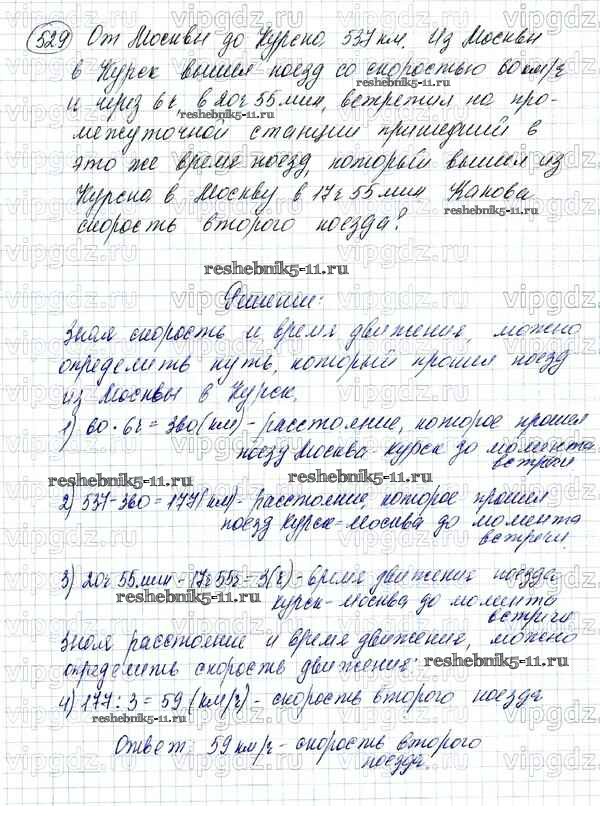 529 От Москвы до Курска 537 км. Из Москвы
в Курск вышел поезд со скоростью 60 км/ч
и через 6ч, в 20ч 55мин, встретил на про-
reshebnik5-11.ru
межуточной станции пришедший в
это же время поезд, который вышел из
Курска в Москву в 17ч 55мин Какова
reshebnik5-11.ru
скорость второго поезда?
reshebnik5-11.ru
Решение:
Зная скорость и время движения, можно
определить путь, который прошел поезд
из Москвы в Курск.
1) 60·6ч = 360(км) - расстояние, которое прошел
поезд Москва-Курск до момента
встречи
reshebnik5-11.ru
2) 537-360=177(км)- расстояние, которое прошел
поезд Курск-Москва до момента
встречи.
3) 20ч 55мин - 17ч 55ч = 3(ч) - время движение поезда
reshebnik5-11.ru
курск-москва до момента
встречи
Зная расстояние и время движение, можно
определить скорость движения:
reshebnik5-11.ru
4) 177:3=59 (км/ч) - скорость второго поезда
reshebnik5-11.ru
Ответ: 59 км/ч - скорость второго
поезда.